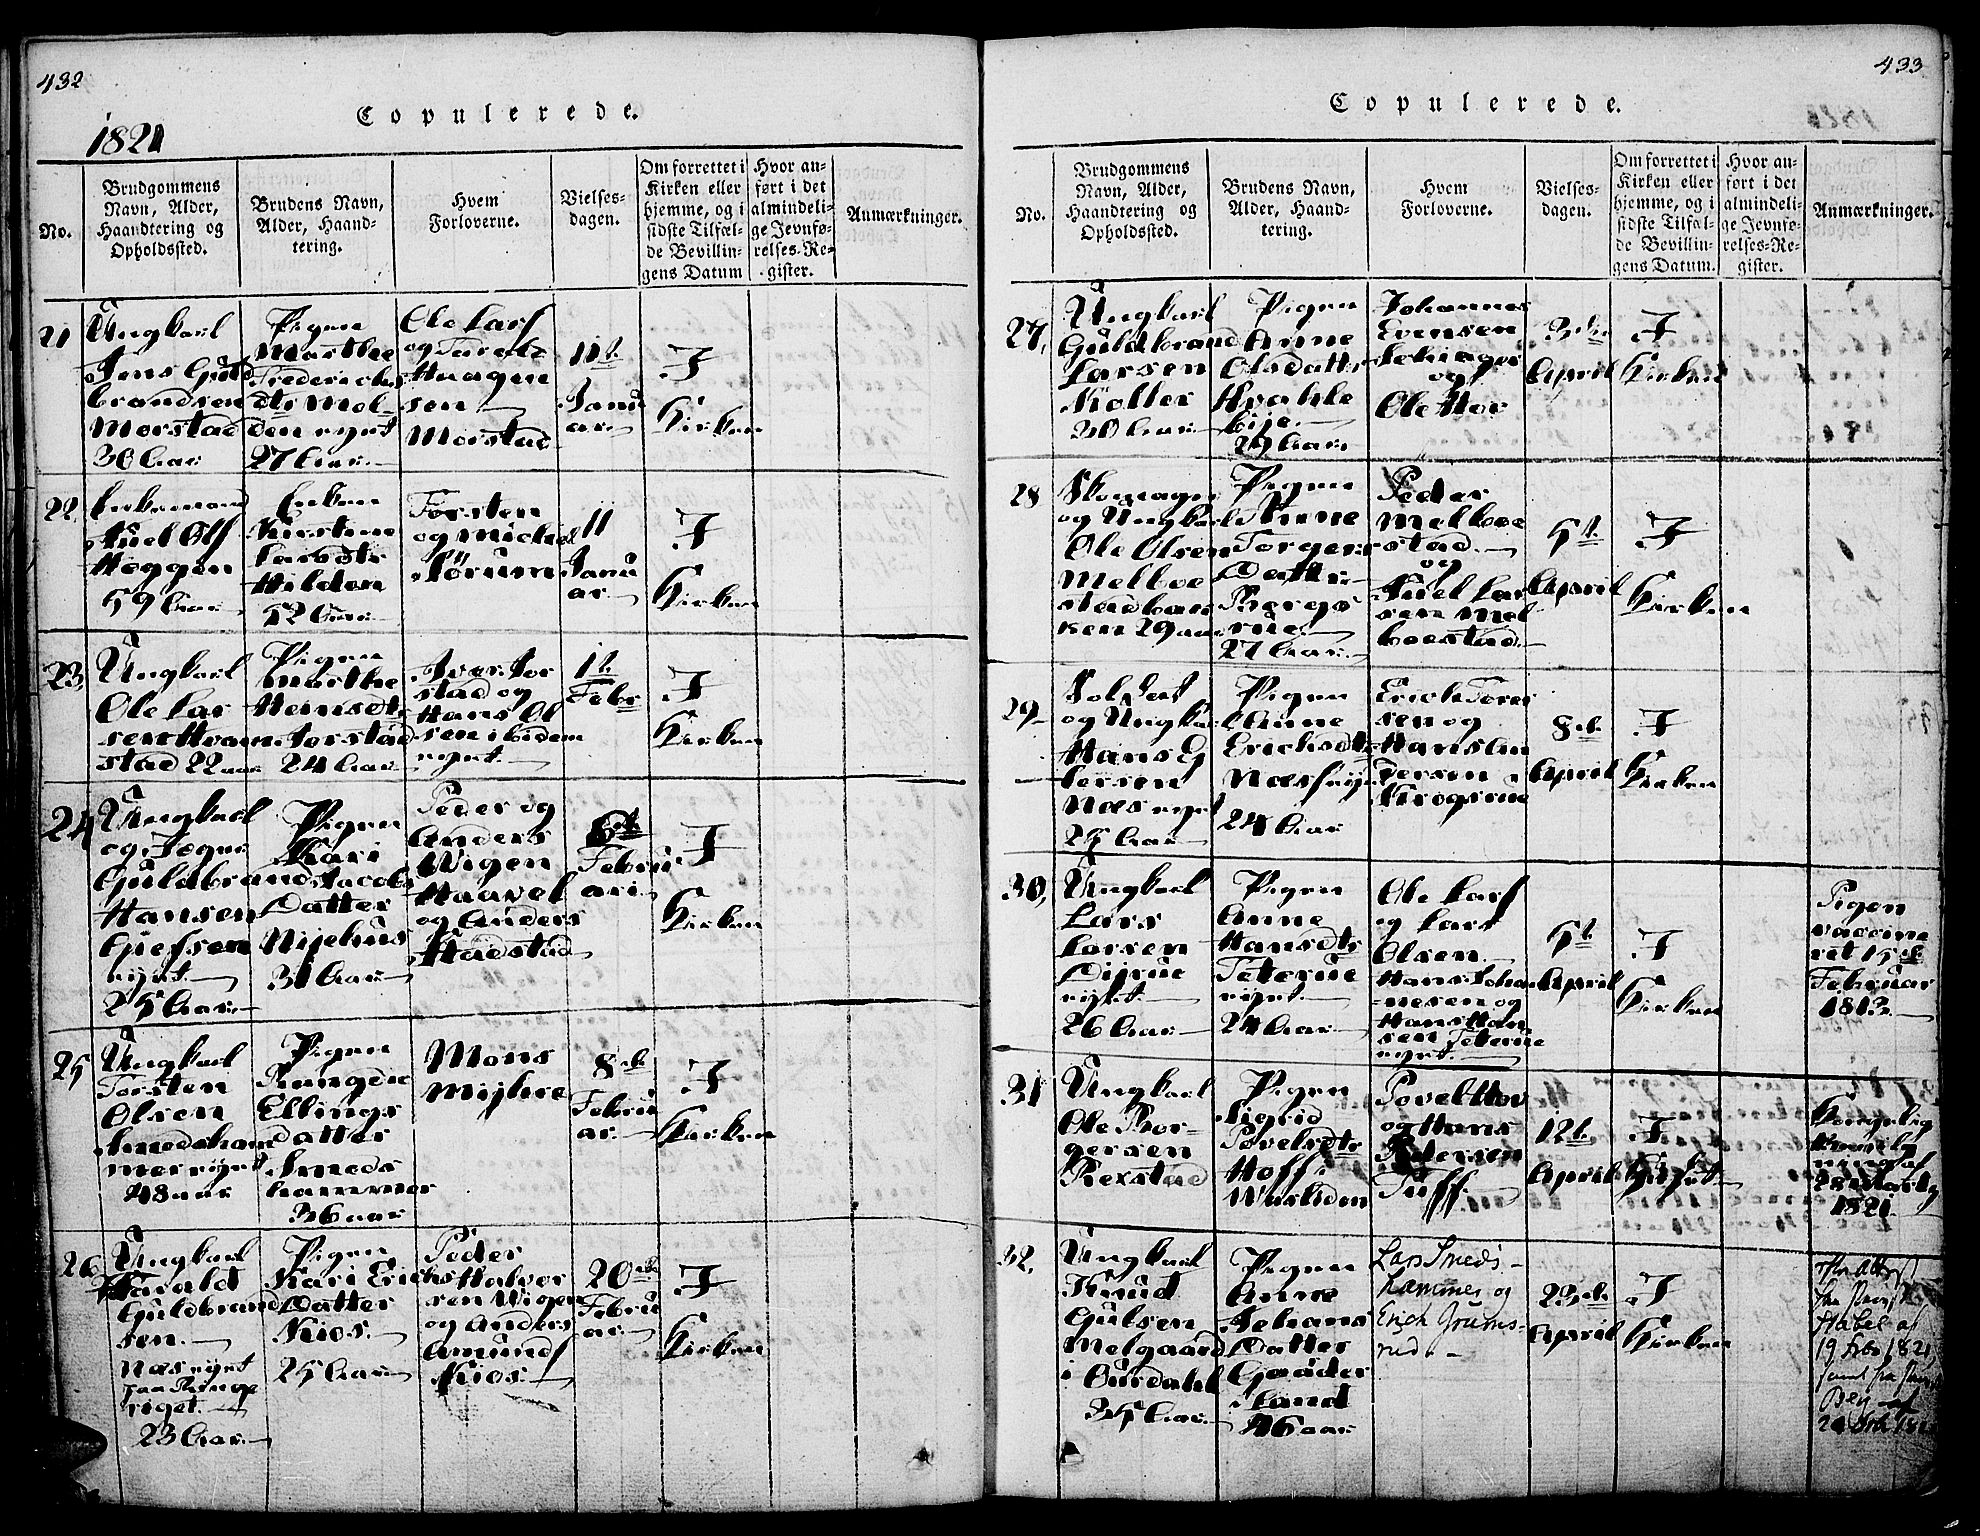 432
Copulerede.
1821
No.
Brudgommens
Navn, Alder,
Haandtering og
Opholdssted.
Brudens Navn,
Alder, Haand-
tering.
Hvem
Forloverne.
Vielses-
dagen.
Om forrettet i
Kirken eller
hjemme, og i
sidste Tilfæl-
de Bevillin-
gens Datum
Hvor an-
ført i det
almindeli-
ge Jevnfø-
relses-Re-
gister.
Anmærkninger.
21
Ungkarl
Jens Guld
brandsen
Morstad
30 Aar
Pigen
Marthe
Fredericks
dtr Mel-
den eyet
27 Aar
Ole Lars
og Harald
Haagen
sen
Morstad
11t.
Janu
ar
I
Kirken
22
Enkemand
Juel Ols
Heggen
59 Aar
Enken
Kirstine
Larsdtr
Hilden
52 Aar
Torsten
og Michel
Sørum
11
Janu
ar
I
Kirken
23,
Ungkarl
Ole Lar
sen Hvam
stad 22 aar
Pigen
Marthe
Hansdtr
Jorstad
24 Aar
Iver Jor
stad og
Hans Ol
sen ibidem
eyet
1t.
Febr
I
Kirken
24
Ungkarl
og Jeger
Guldbrand
Hansen
Gjefsen
eyet
25 Aar
Pigen
Kari
Jacobs
Datter
Nijehus
31 Aar
Peder og
Anders
Wigen
Haavel
og Anders
Hadstad
6te
Febru
ari
I
Kirken
25
Ungkarl
Torsten
Olsen
Smedsham
mer eyet
48 aar
Pigen
Rangdi
Ellings
datter
Smeds
hammer
36 aar
Mons
Mijhre
8de
Febru
ar
I
Kirken
26
Ungkarl
Harald
Guldbrand
sen
Næs eyet
23 Aar
Pigen
Kari Erichs
Datter
Kios
25 Aar
Peder
Halvor
sen Wigen
og Anders
Amunds
Kios
20de
Febru
ar
I
Kirken
433
Copulerede.
No.
Brudgommens
Navn, Alder,
Haandtering og
Opholdssted.
Brudens Navn,
Alder, Haand-
tering.
Hvem
Forloverne.
Vielses-
dagen.
Om forrettet i
Kirken eller
hjemme, og i
sidste Tilfæl-
de Bevillin-
gens Datum.
Hvor an-
ført i det
almindeli-
ge Jevnfø-
relses-Re-
gister.
Anmærkninger.
27,
Ungkarl
Guldbrand
Larsen
Møller
30 Aar
Pigen
Anne
Olsdattr
Hvakle
bije
29 Aar
Johannes
Evensen
og
Ole Hor
3die
April
I
Kirken
28
Skomager
og Ungkarl
Ole Olsen
Melboe
stadbak
ken 29 aar
Pigen
Anne
Torgers
Dattr
Bergs
rue
27 Aar
Peder
Melboe
stad
og
Juel Lar
sen Mel
boestad
5t.
April
I
Kirken
29
Soldat
og Ungkarl
Hans G
bersen
Næs eyet
25 Aar
Pigen
Anne
Erichsdtr
Næss eyet
24 Aar
Erich Tores
sen og
Hans An
dersen
Krogsrue
8de
April
I
Kirken
30,
Ungkarl
Lars
Larsen
eyet
26 Aar
Pigen
Anne
Hansdtr
Teterue
eyet
24 Aar
Ole Lars
og Lars
Olsen
Hans Johan
nesen og
Hans Han
sen Teterue
eyet
5t.
April
I
Kirken
Pigen
vaccine
ret 15de
Februar
1813
31
Ungkarl
Ole Bor-
gersen
Rexstad
Pigen
Sigrid
Povelsdtr
Hoff i
Wasliden
Povel Hov
og Hans
Pedersen
Tuff
12t.
April
I
1821
32.
Ungkarl
Knud
Gulsen
Melgaard
i
Ourdahl
35 Aar
Pigen
Anne
Johans
Datter
Gaader
Sand
46 aar
Lars Smeds-
hammer og
Erich Grims-
rud
23de
April
I
Kirken
19 Febr 1821,